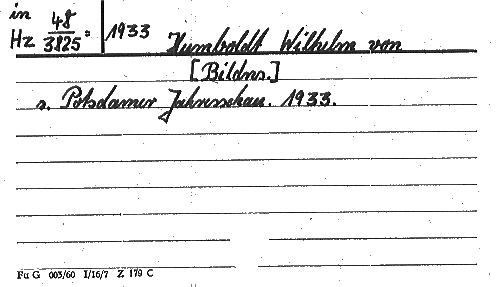 in
Hz 48/3825: 1933 Humboldt Wilhelm von
[Bildns.]
s. Potsdamer Jahresschau. 1933.
Fu G 003/60 I/16/7 Z 179 C